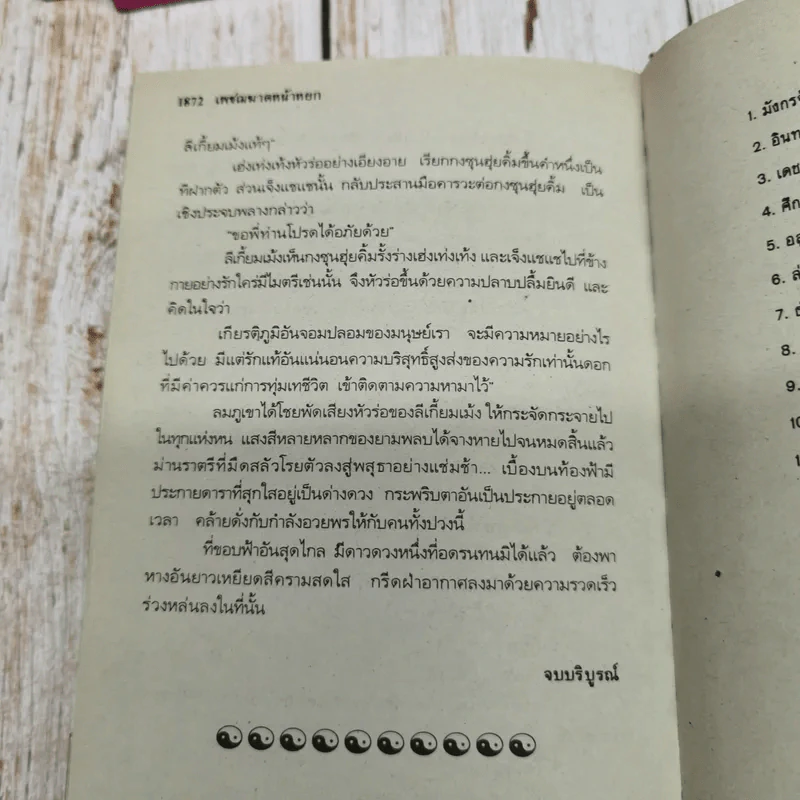 1872 เพชฌฆาตหน้าหยก
ลีเกี้ยมเม้งแท้ๆ"
เฮ่งเท่งเท้งหัวร่ออย่างเอียงอาย เรียกกงซุนฮุ่ยคิ้มขึ้นคำหนึ่งเป็น
ที่ฝากตัว ส่วนเจ็งแชแชนั้น กลับประสานมือคารวะต่อกงซุนฮุ่ยคิ้ม เป็น
เชิงประจบพลางกล่าวว่า
"ขอพี่ท่านโปรดได้อภัยด้วย"
ลีเกี้ยมเม้งเห็นกงซุนฮุ่ยคิ้มรั้งร่างเฮ่งเท่งเท้ง และเจ็งแชแชไปที่ข้าง
กายอย่างรักใคร่มีไมตรีเช่นนั้น จึงหัวร่อขึ้นด้วยความปลาบปลื้มยินดี และ
คิดในใจว่า
เกียรติภูมิอันจอมปลอมของมนุษย์เรา จะมีความหมายอย่างไร
ไปด้วย มีแต่รักแท้อันแน่นอนความบริสุทธิ์สูงส่งของความรักเท่านั้นดอก
ที่มีค่าควรแก่การทุ่มเทชีวิต เข้าติดตามความหามาไว้"
ลมภูเขาได้โชยพัดเสียงหัวร่อของลีเกี้ยมเม้ง ให้กระจัดกระจายไป
ในทุกแห่งหน แสงสีหลายหลากของยามพลบได้จางหายไปจนหมดสิ้นแล้ว
ม่านราตรีที่มืดสลัวโรยตัวลงสู่พสุธาอย่างแช่มช้า... เบื้องบนท้องฟ้ามี
ประกายดาราที่สุกใสอยู่เป็นด่างดวง กระพริบตาอันเป็นประกายอยู่ตลอด
เวลา คล้ายดั่งกับกำลังอวยพรให้กับคนทั้งปวงนี้
ที่ขอบฟ้าอันสุดไกล มีดาวดวงหนึ่งที่อดรนทนมิได้แล้ว ต้องพา
หางอันยาวเหยียดสีครามสดใส กรีดฝ่าอากาศลงมาด้วยความรวดเร็ว
ร่วงหล่นลงในที่นั้น
จบบริบูรณ์
1. มังกร
2. อินท
3. เดช
4. ศึก
5.
6.
7.
8.
9.
10